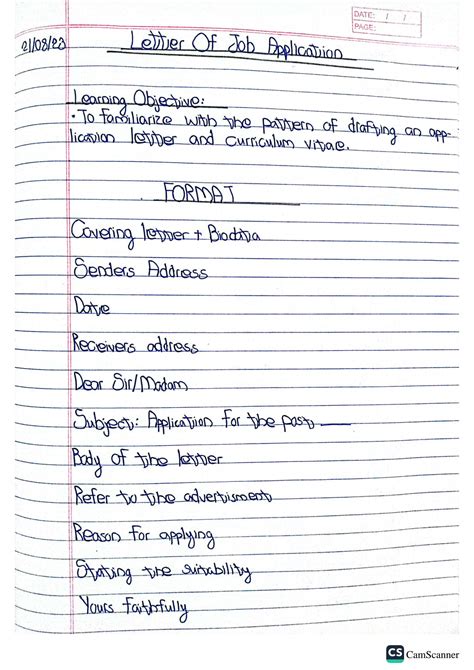 DATE: / /
PAGE:
21/08/23
Letter Of Job Application
Learning Objective:
• To familiarize with the pattern of drafting an app-
lication letter and curriculum vitae.
FORMAT
Covering letter + Biodata
Senders Address
Date
Receivers address
Dear Sir/Madam
Subject: Application for the post ___
Body of the letter
Refer to the advertisment
Reason for applying
Stating the suitability
Yours faithfully
CS CamScanner